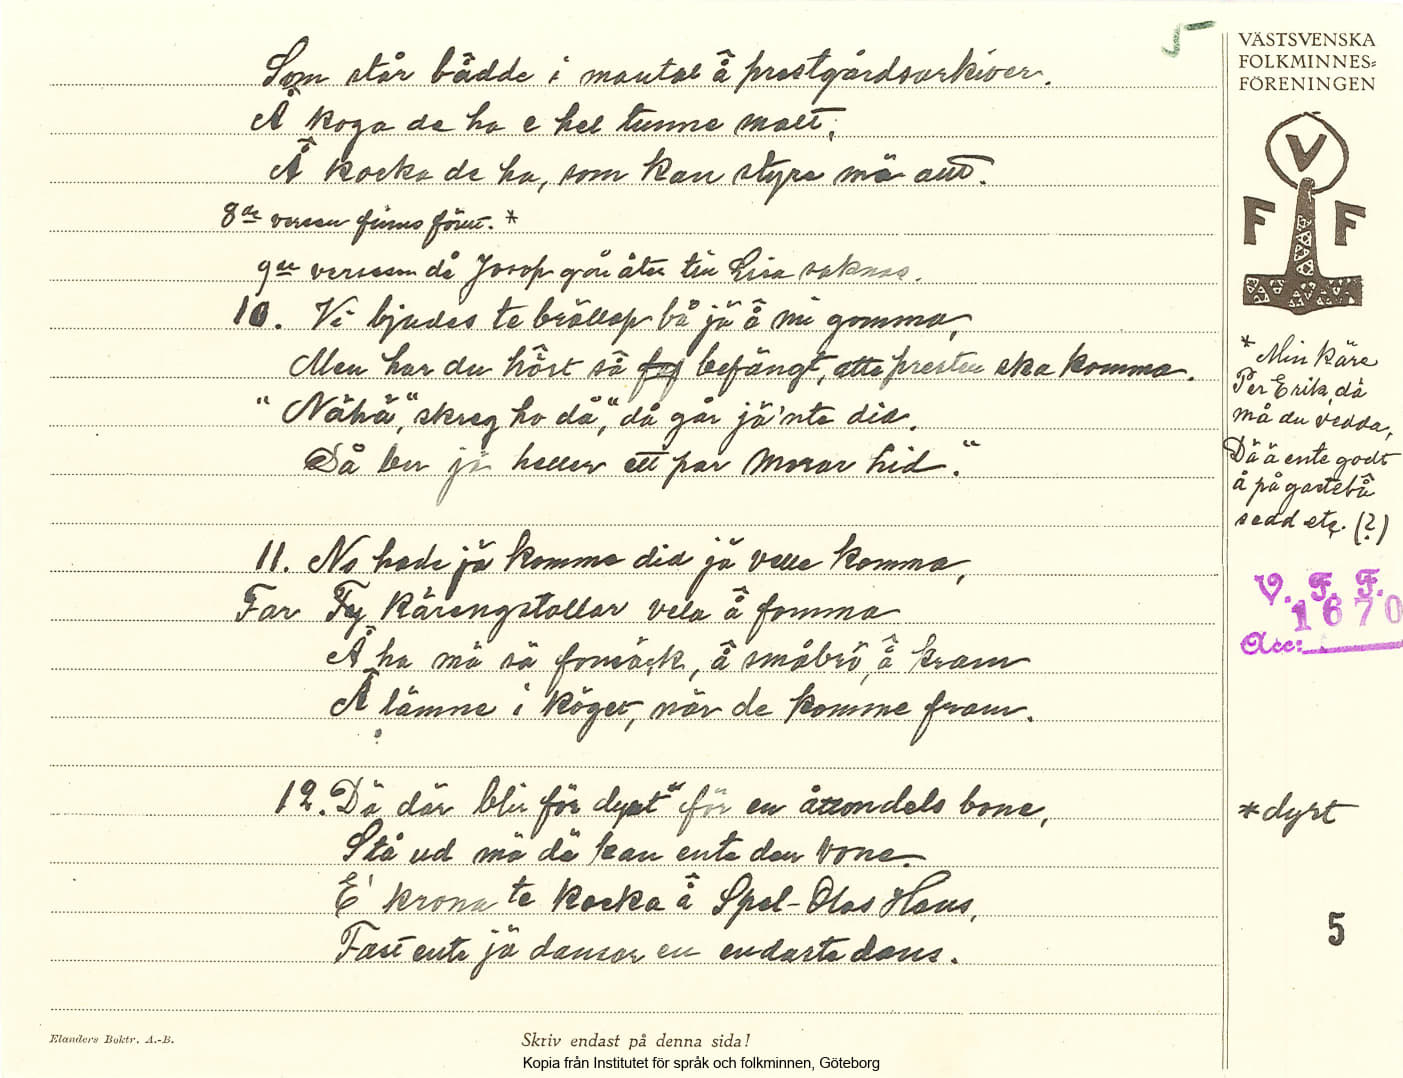 5
Som står bådde i mantal å prestgårdsarkiver.
Å koga de ha e hel tunne malt,
Å kocka de ha, som kan styre mä allt.
8de versen finns förut. *
9de versen då Josep går åter till Lisa saknas.
10. Vi bjudes te bröllop bå jä å mi gomma,
Men har du hört så befängt, atte presten ska komma.
"Nähä," skreg ho då, "då går jä 'nte did.
Då ber jä heller ett par morar hid."
11. No hade jä komme did jä velle komma,
Far Ty käringstollar vela å fomma
Å ha mä sä fonsäck, å småbrö, å kram
Å lämne i köget, när de komme fram.
12. Dä där blir för dyst* för en åttondels bone,
Stå ud mä dä kan ente den vone.
E' krona te kocka å Spel-Olas Hans,
Fast ente jä dansar en endaste dans.
VÄSTSVENSKA
FOLKMINNES=
FÖRENINGEN
V
F F
* Min käre
Per Erik, dä
må du vedda,
Dä ä ente godt
å på gastebå
sedd etc. (?)
V. F. F.
1670
Acc:
* dyrt
5
Elanders Boktr. A.-B.
Skriv endast på denna sida!
Kopia från Institutet för språk och folkminnen, Göteborg